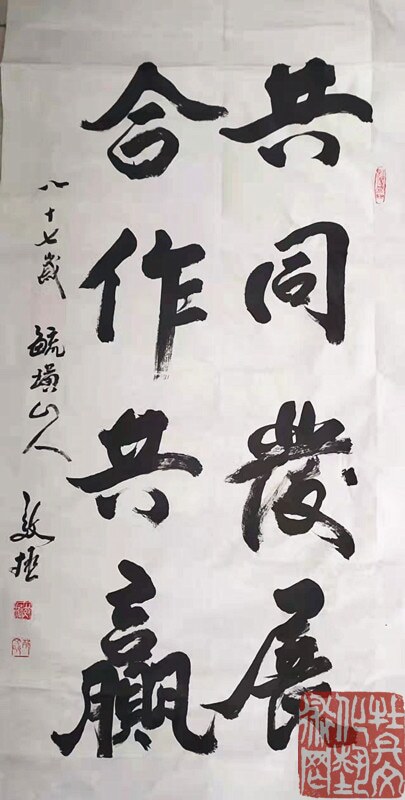 共同發展
合作共贏
八十七歲 毓璜山人